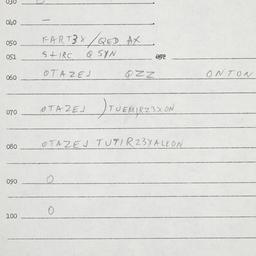 030
040 —
050 FART3X/QED AX
051 S+IRC QSYN
060 OTAZEJ QZZ ONTON
070 OTAZEJ )TUEMIRZ3XON
080 OTAZEJ TUTIRZ3YALEON
090 0
100 0